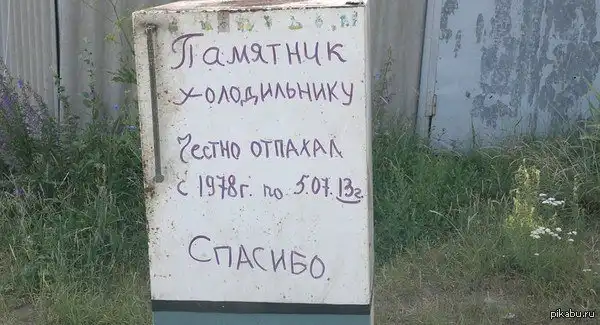 Памятник
холодильнику
Честно отпахал
с 1978г. по 5.07.13г
Спасибо
pikabu.ru